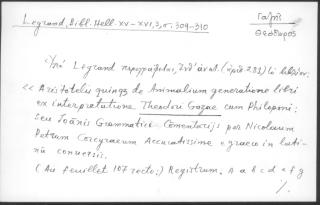 Legrand, Bibl. Hell. XV-XVI, 3, σ. 309-310
Γαζῆς
Θεόδωρος
Ὑπὸ Legrand περιγράφεται, ὑπ' ἀριθ. (281) τὸ βιβλίον:
«Aristotelis quinqz de Animalium generatione libri
ex interpretatione Theodori Gazae cum Philoponi:
seu Joānis Grammatici Comentarijs per Nicolaum
Petrum Corcyraeum Accuratissime e graeco in lati-
nū conuersis.
(Au feuillet 107 recto:) Registrum. A a b c d e f g
·/.